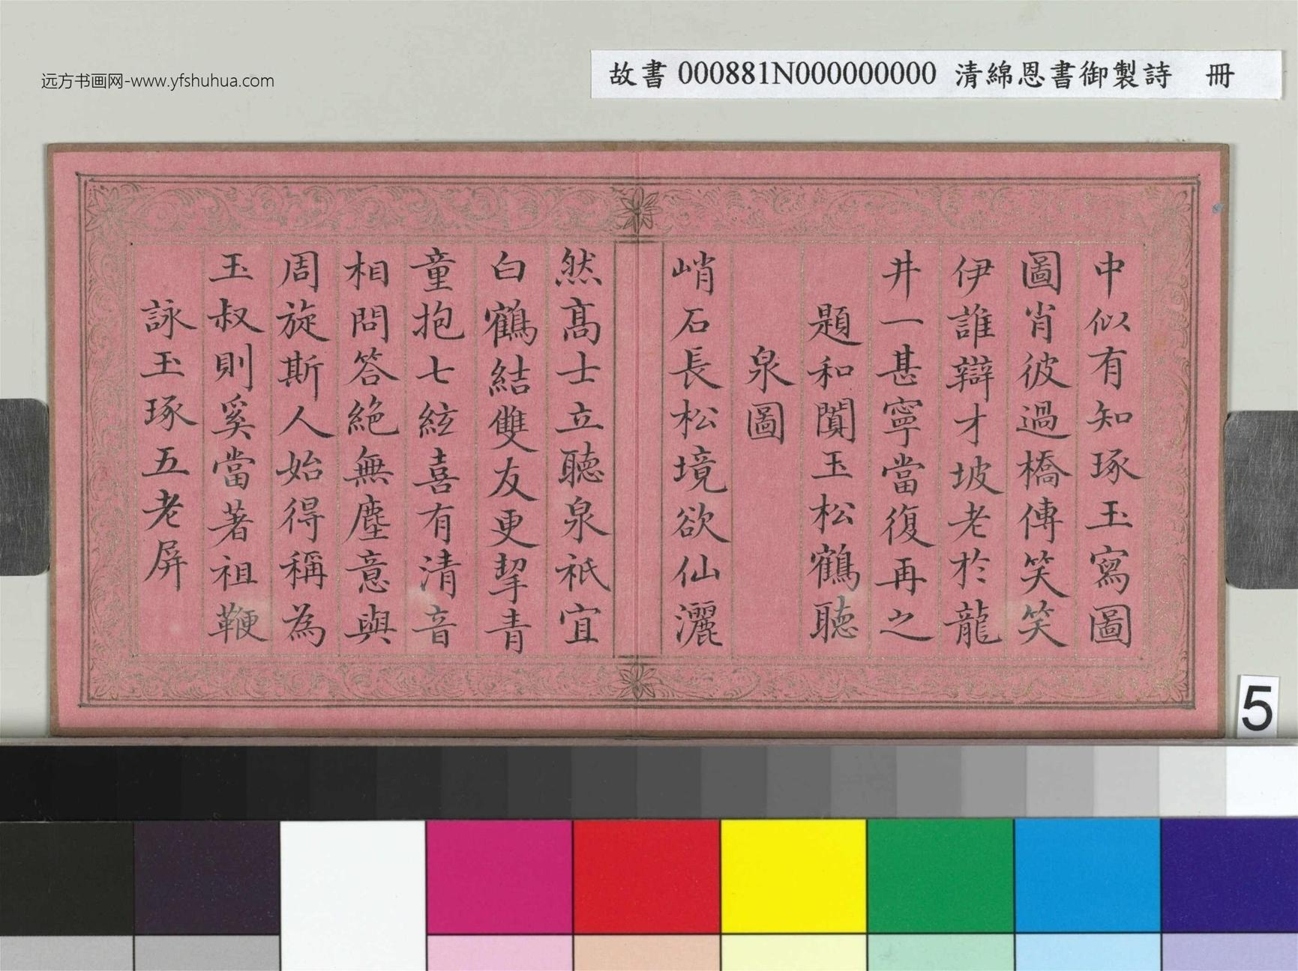 远方书画网-www.yfshuhua.com
故書 000881N000000000 清綿恩書御製詩 冊
中似有知琢玉寫圖
圖肖彼過橋傳笑笑
伊誰辯才坡老於龍
井一甚寧當復再之
題和闐玉松鶴聽
泉圖
峭石長松境欲仙灑
然高士立聽泉祇宜
白鶴結雙友更挈青
童抱七絃喜有清音
相問答絕無塵意與
周旋斯人始得稱為
玉叔則奚當著祖鞭
詠玉琢五老屏
5